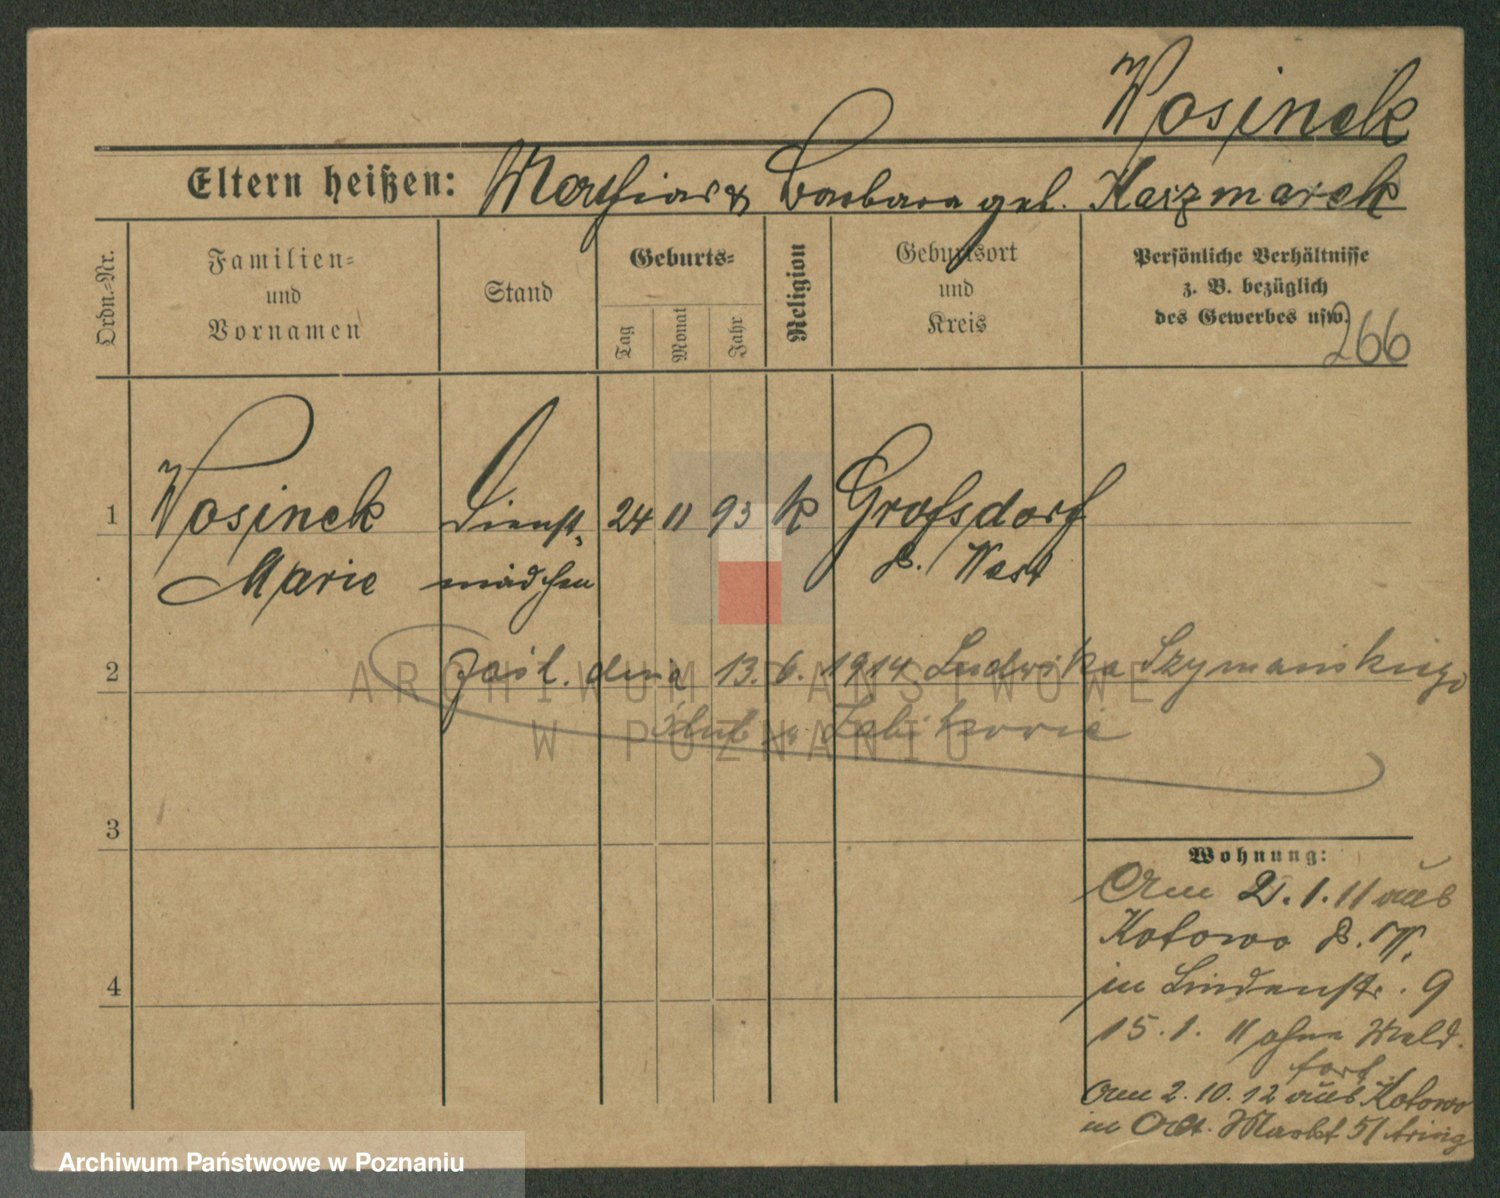 Wosinek
Eltern heißen: Mathias & Barbara geb. Karzmarek
Ordn.-Nr.
Familien- und Vornamen
Stand
Geburts-
Tag
Monat
Jahr
Religion
Geburtsort und Kreis
Persönliche Verhältnisse
z. B. bezüglich
des Gewerbes usw.
266
1 Wosinek Dienst- 24 11 93 k Grofsdorf
Marie mädchen P. West
2 zaśl. dnia 13.6.1914 Ludwika Szymańskiego
ślub w Żabikowie
3
Wohnung:
Am 2.1.11 aus
Kotowo P. W.
in Lindenstr. 9
4
15.1.11 ohne Meld.
fort
Am 2.10.12 aus Kotowo
in Alt. Markt 51
ARCHIWUM PAŃSTWOWE
W POZNANIU
Archiwum Państwowe w Poznaniu